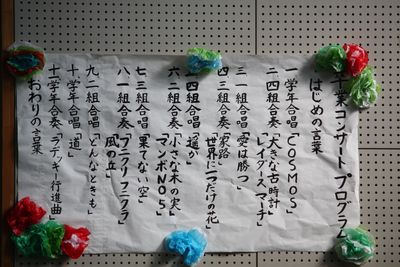 業コンサート プログラム
はじめの言葉
一 学年合唱「COSMOS」
二 四組合奏「大きな古時計」
「レイダース マーチ」
三 一組合唱「愛は勝つ」
四 三組合奏「家路」
「世界に一つだけの花」
四組合唱「遥か」
六 二組合奏「小さな木の実」
「マンボNO5」
七 三組合唱「果てない空」
八 一組合奏「フニクリフニクラ」
「風の丘」
九 二組合唱「どんなときも」
十 学年合唱「道」
十一 学年合奏「ラデッキー行進曲」
おわりの言葉